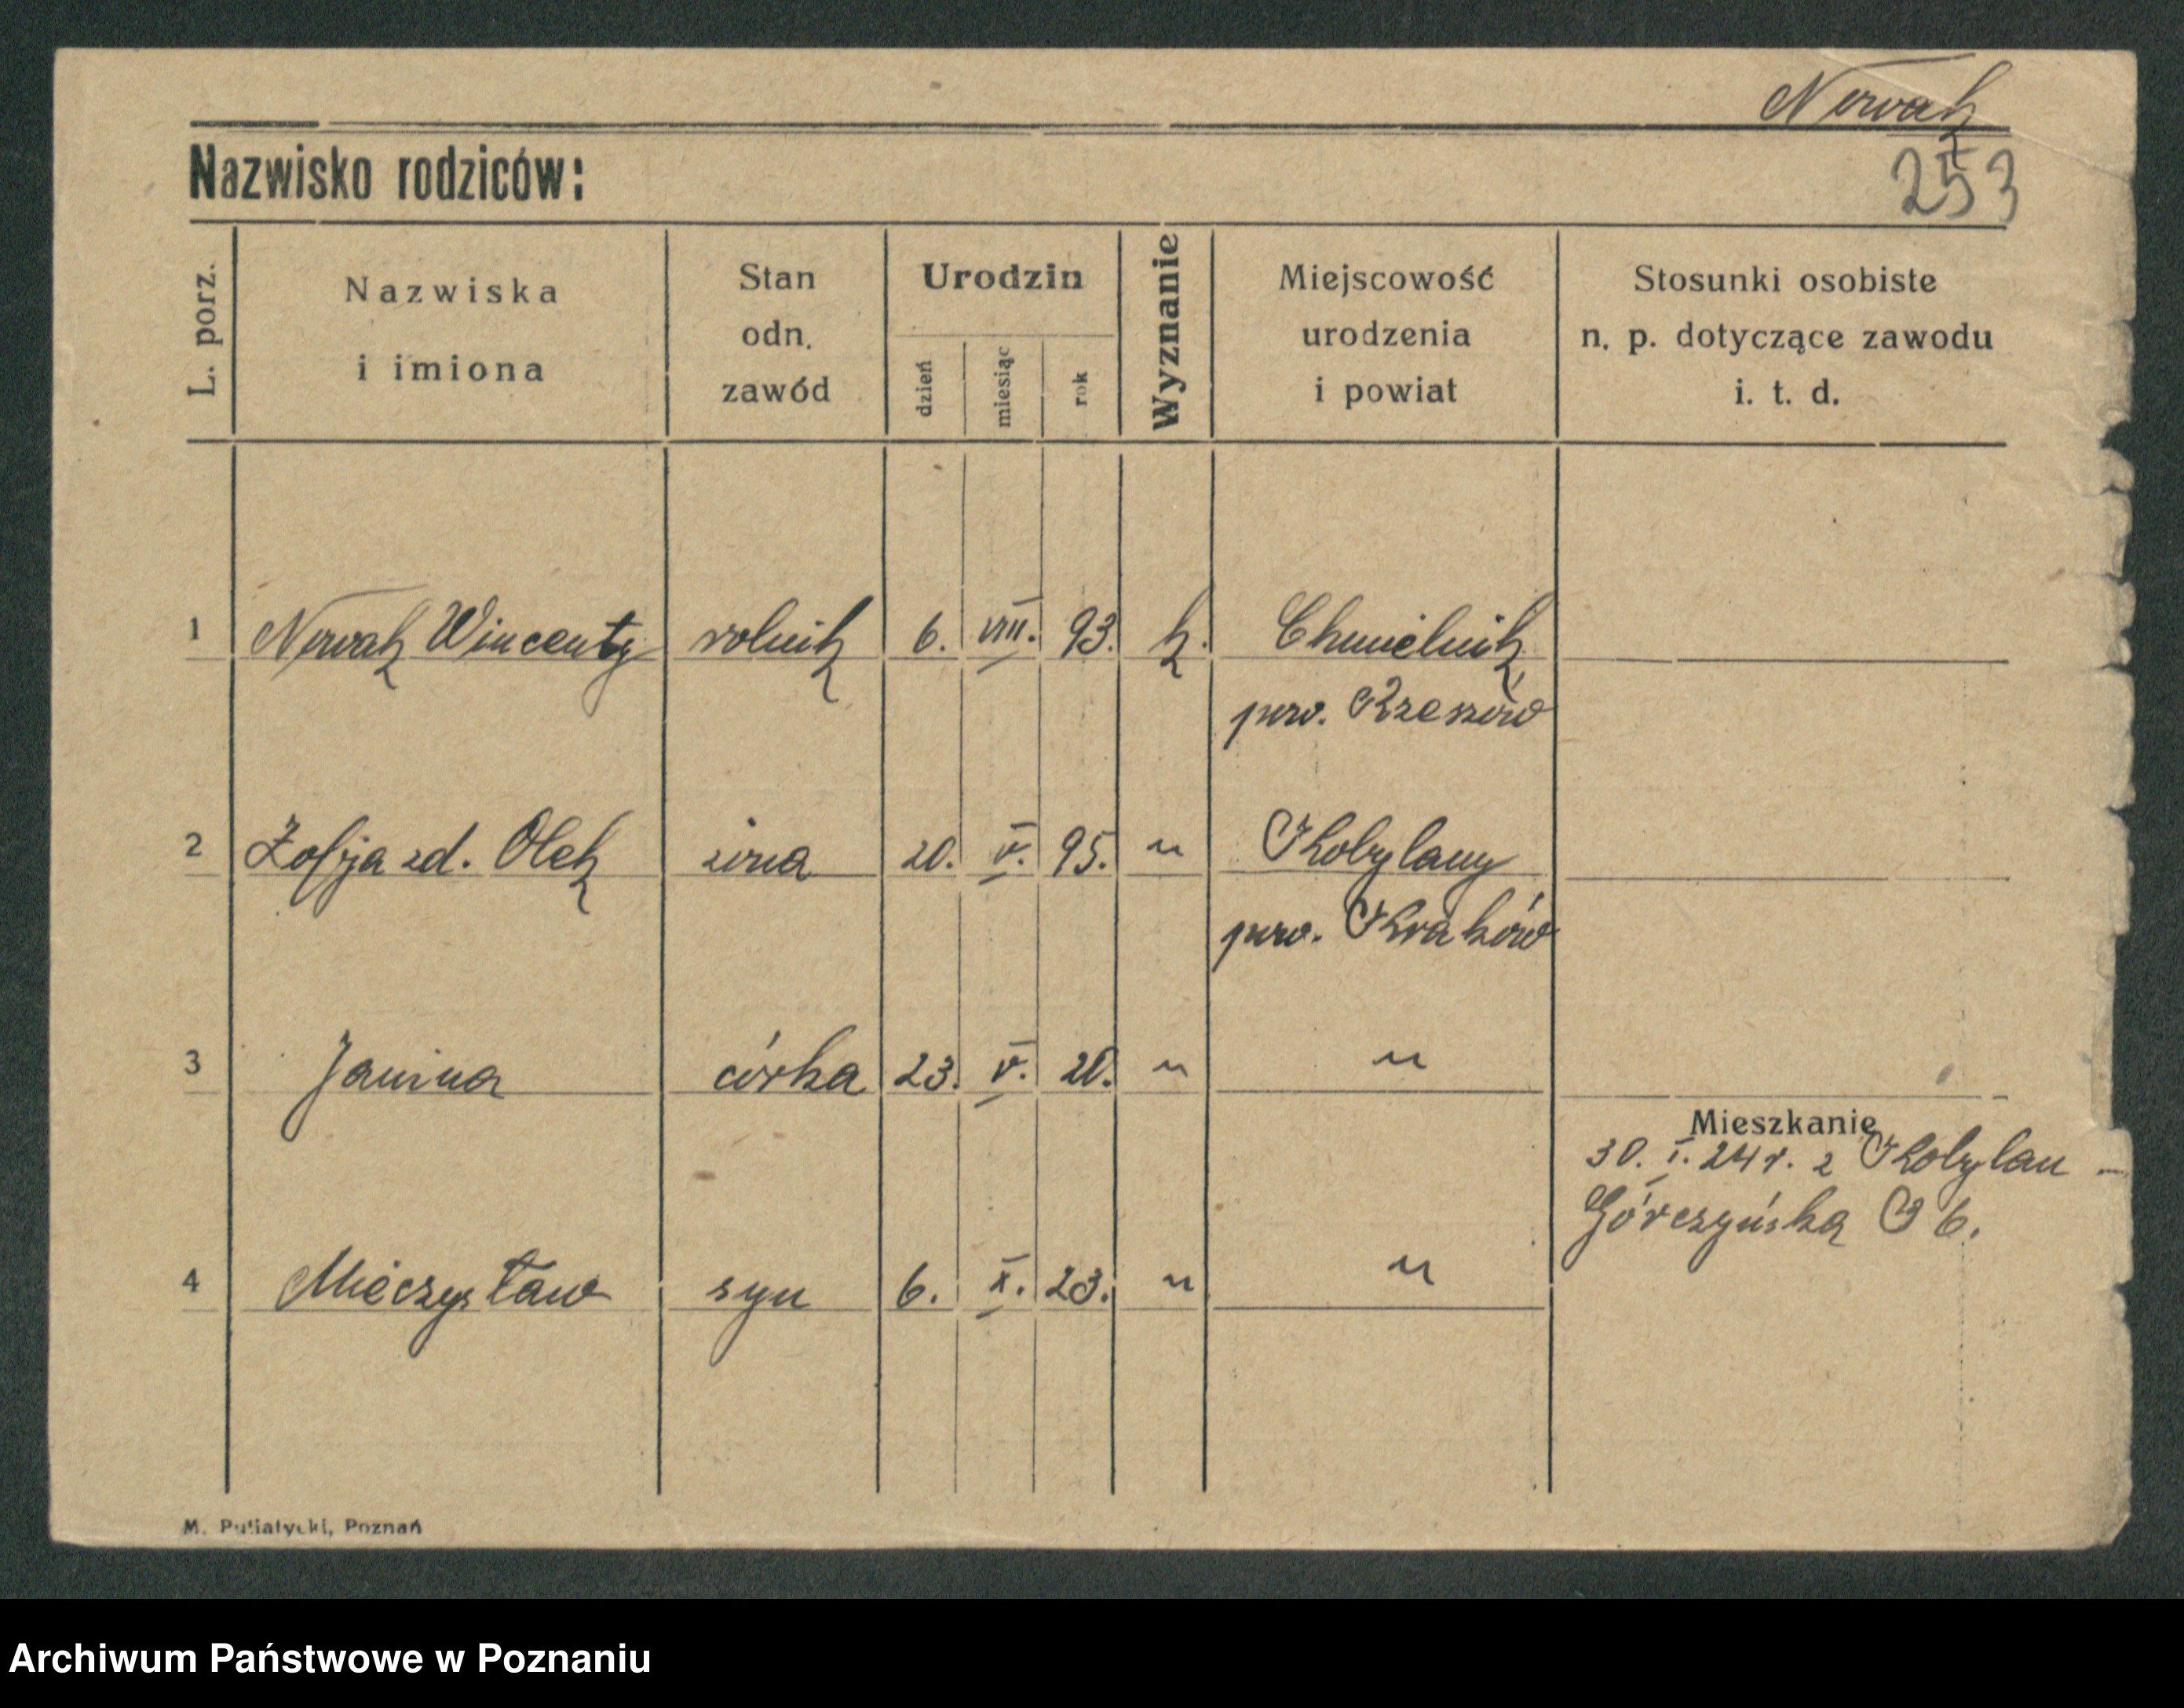 Nowak
253
Nazwisko rodziców:
L. porz.
Nazwiska
i imiona
Stan
odn.
zawód
Urodzin
dzień
miesiąc
rok
Wyznanie
Miejscowość
urodzenia
i powiat
Stosunki osobiste
n. p. dotyczące zawodu
i. t. d.
1 Nowak Wincenty rolnik 6. VIII. 93. k. Chmielnik
pow. Rzeszów
2 Zofja zd. Olek żona 20. V. 95. " Kobylany
pow. Kraków
3 Janina córka 23. V. 20. " "
Mieszkanie
30. I. 24 r. z Kobylan -
Górczyńska 6.
4 Mieczysław syn 6. X. 23. " "
M. Putiatycki, Poznań
Archiwum Państwowe w Poznaniu